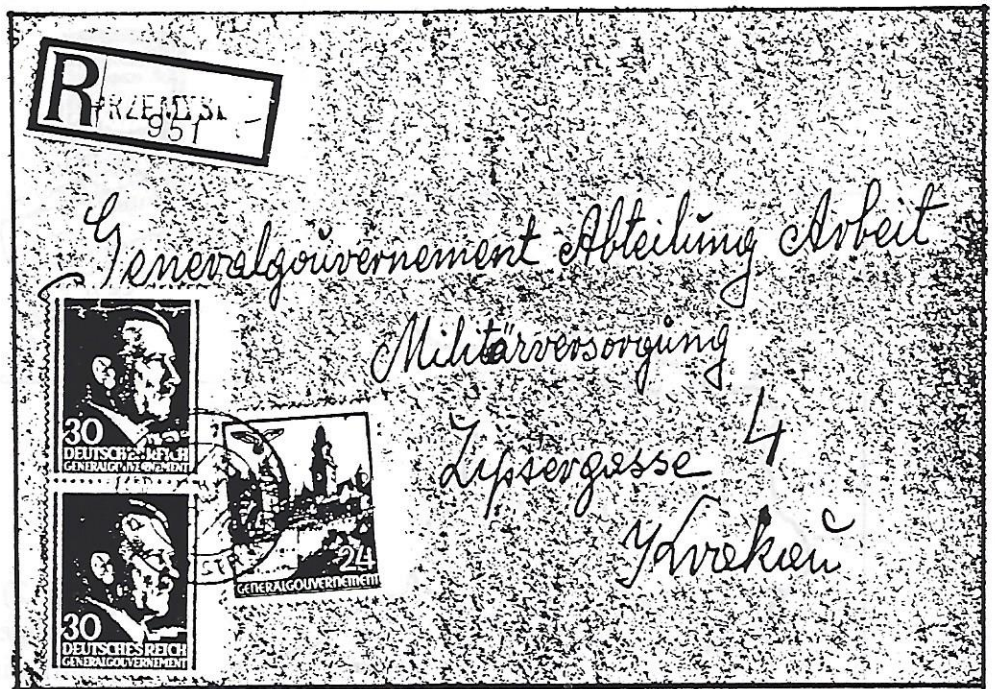 R PRZEMYSL
957
Generalgouvernement Abteilung Arbeit
Militärversorgung
Zipsergasse 4
Krakau
30
DEUTSCHES REICH
GENERALGOUVERNEMENT
24
GENERALGOUVERNEMENT
30
DEUTSCHES REICH
GENERALGOUVERNEMENT